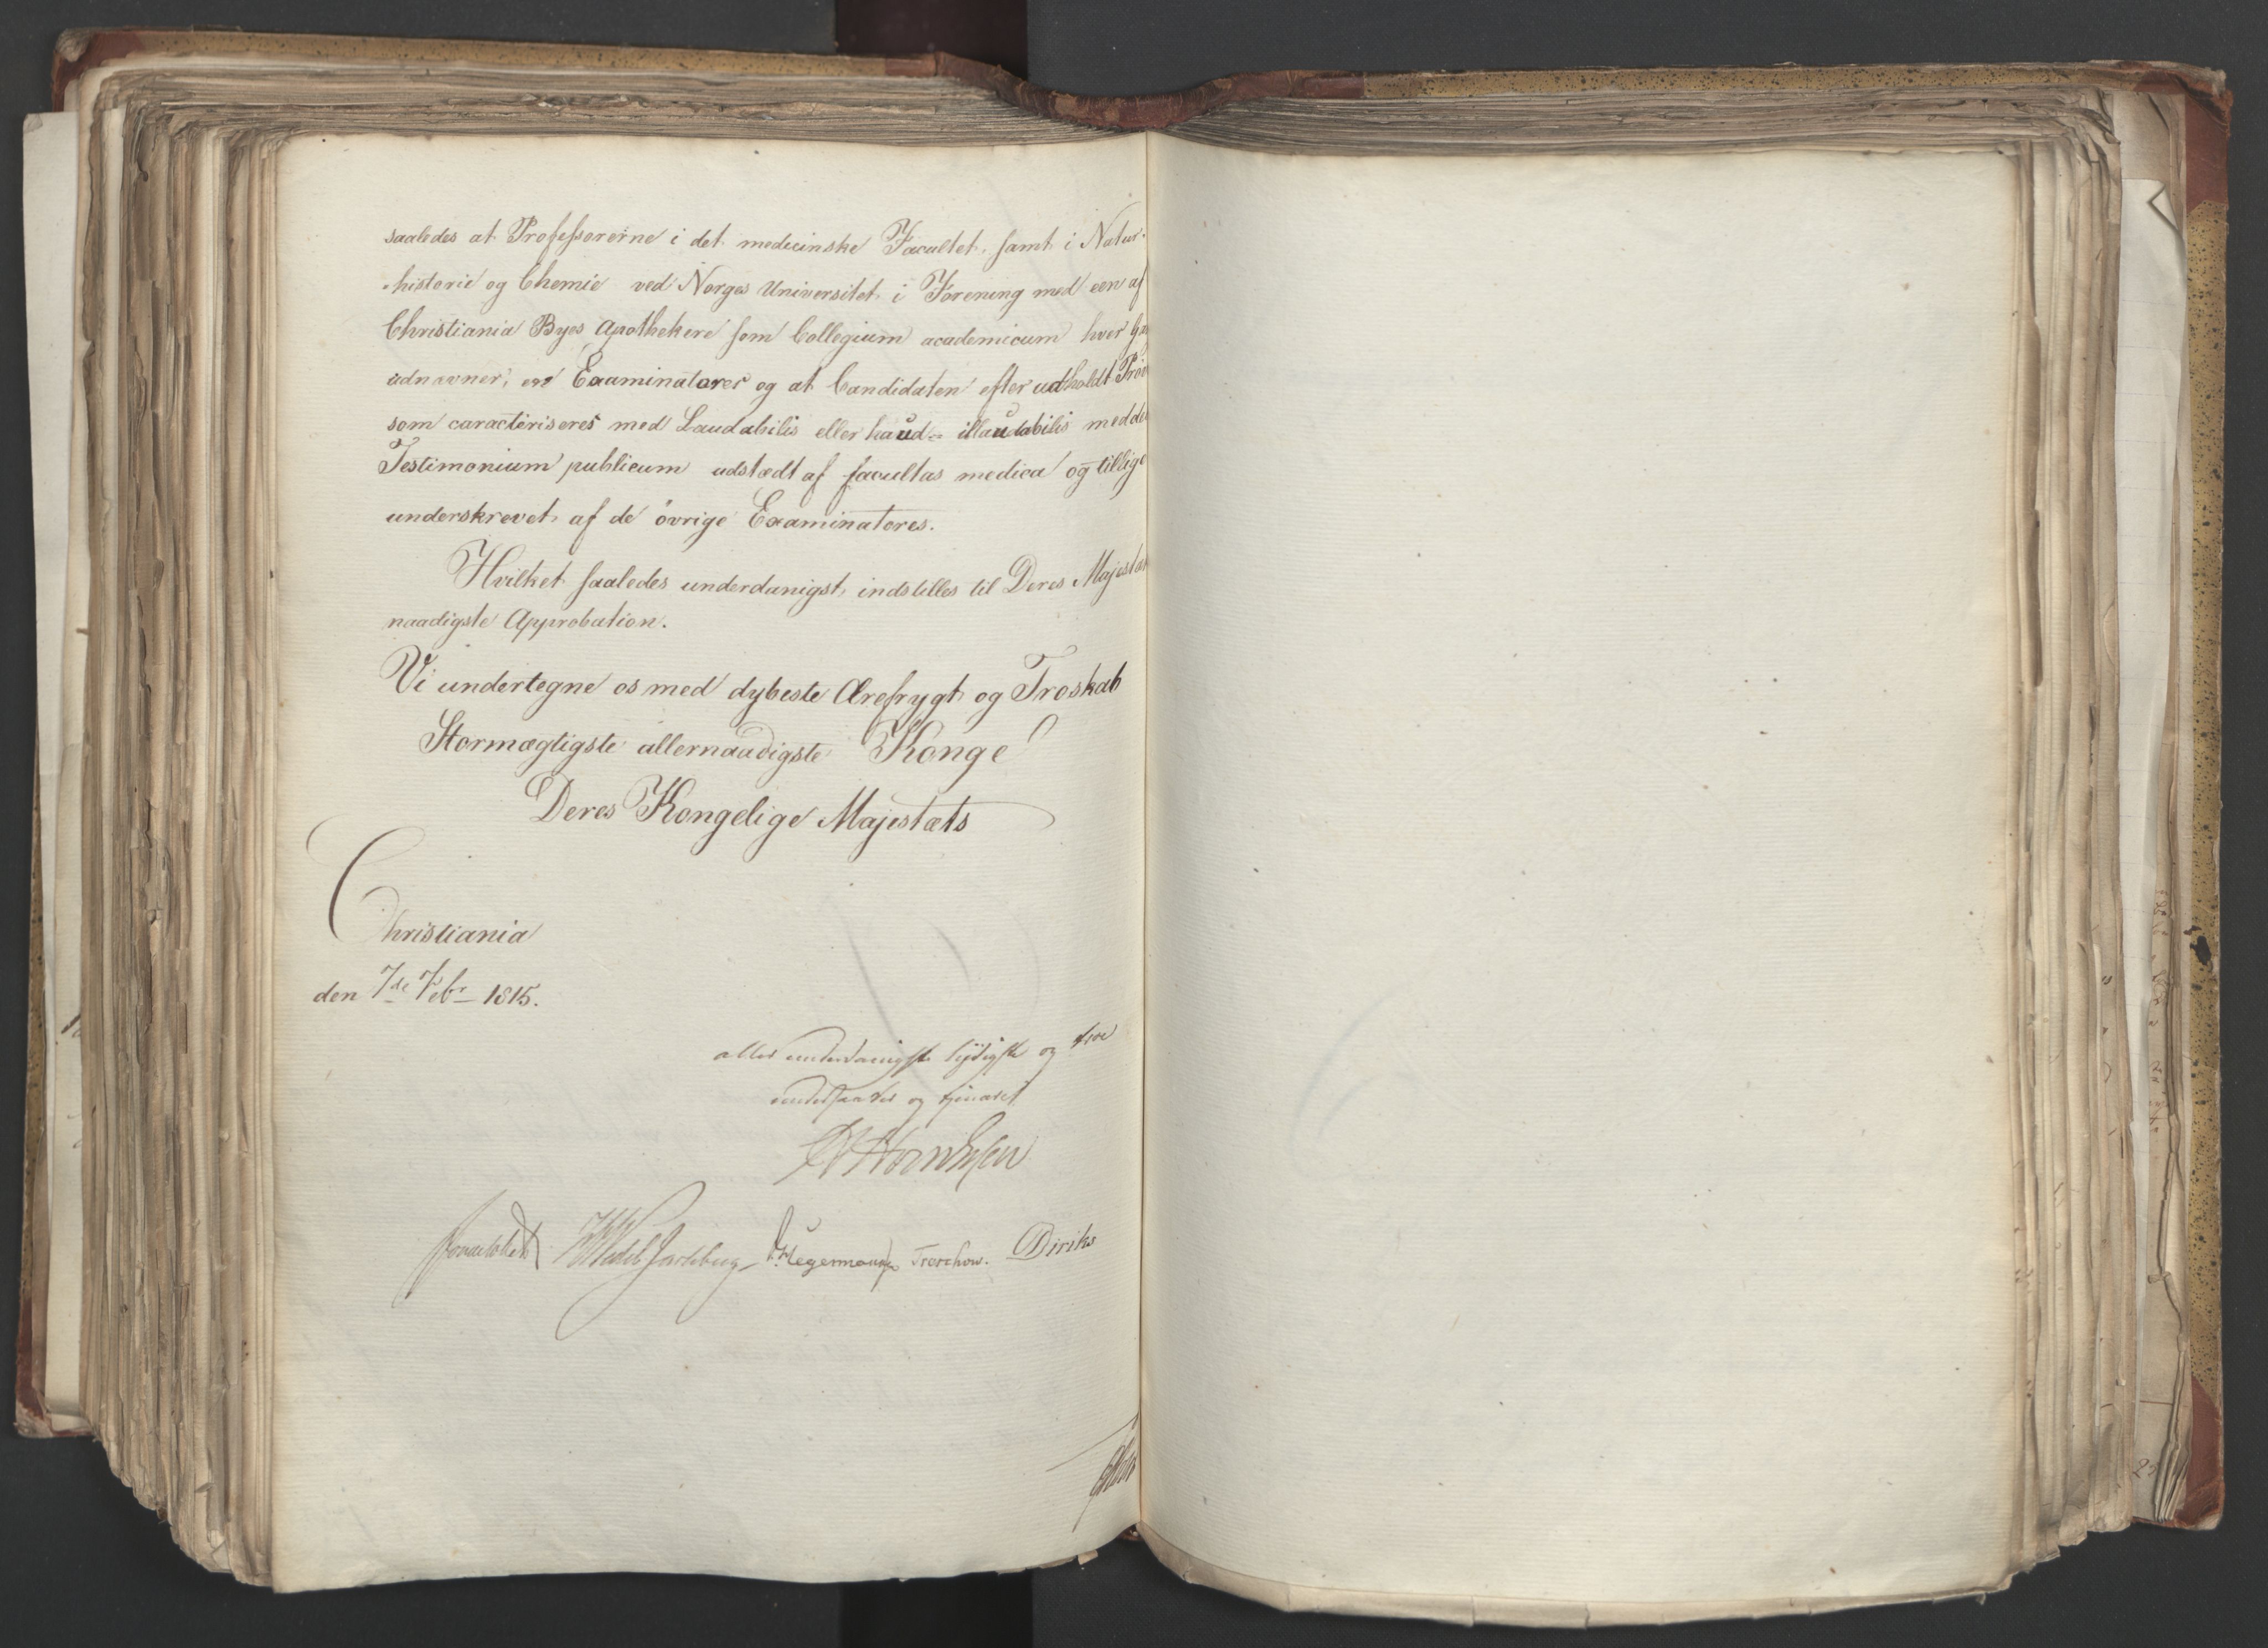 saaledes at Professorerne i det medicinske Facultet, samt i Natur-
-historie og Chemie ved Norges Universitet i Forening med een af
Christiania Byes Apothekere som Collegium academicum hver
udnævner, ere Examinatores og at Candidaten efter udholdt Prøv
som caracteriseres med Laudabilis eller haud- illaudabilis medde
Testimonium publicum udstædt af facultas medica og tillige
underskrevet af de övrige Examinatores.
Hvilket saaledes underdanigst indstilles til Deres Majestæt
naadigste Approbation.
Vi undertegne os med dybeste Ærefrygt og Troskab
Stormægtigste allernaadigste Konge
Deres Kongelige Majestæts
Christiania
den 7de Febr 1815.
allerunderdanigste lydigste og troe
undersaatter og tjenere
Sommerhielm HWedel Jarlsberg Hegermann Treschow. Diriks